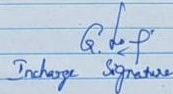 Incharge Signature